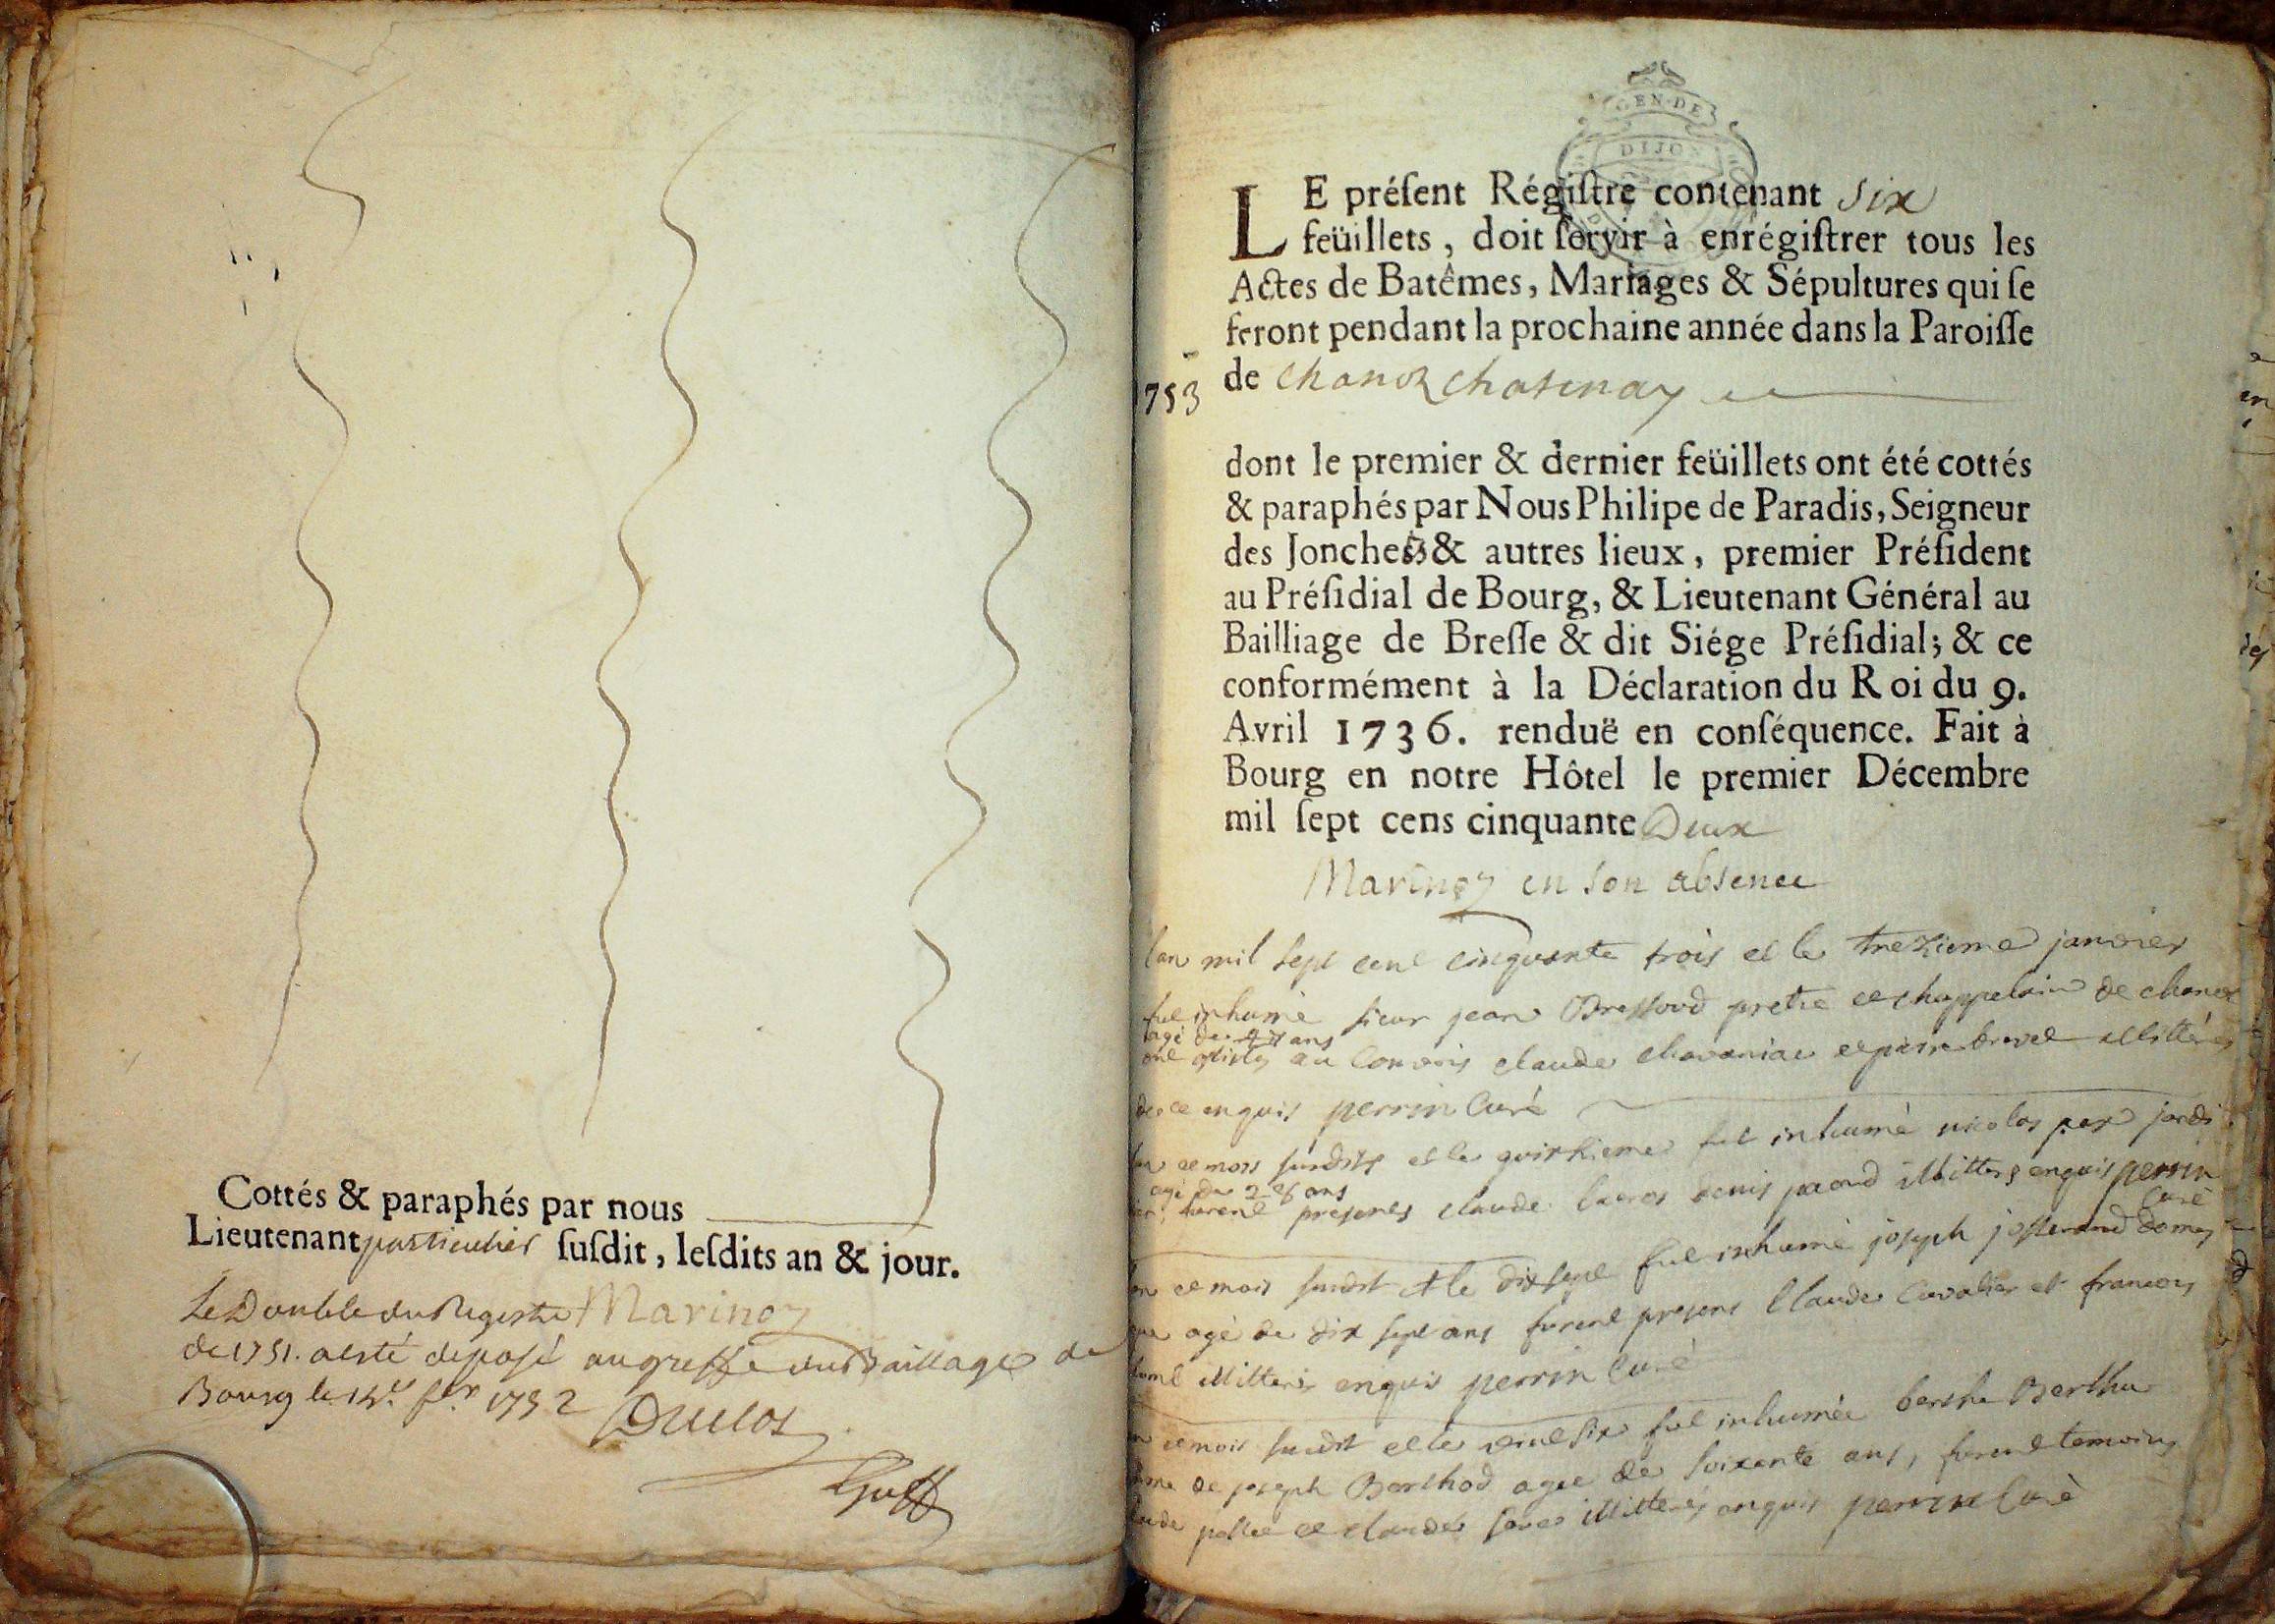 Cottés & paraphés par nous
Lieutenant particulier ſuſdit, leſdits an & jour.
Le Double du Registre Marinoz
de 1751. a esté déposé au greffe du Baillage de
Bourg le 1792
Duclos
Greff
GEN·DE
DIJON
LE préſent Régiſtre contenant six
feüillets, doit ſervir à enrégiſtrer tous les
Actes de Batêmes, Mariages & Sépultures qui ſe
feront pendant la prochaine année dans la Paroiſſe
1753 de Chanoz chatenay
dont le premier & dernier feüillets ont été cottés
& paraphés par Nous Philipe de Paradis, Seigneur
des Jonches & autres lieux, premier Préſident
au Préſidial de Bourg, & Lieutenant Général au
Bailliage de Breſſe & dit Siége Préſidial; & ce
conformément à la Déclaration du Roi du 9.
Avril 1736. renduë en conſéquence. Fait à
Bourg en notre Hôtel le premier Décembre
mil ſept cens cinquante Deux
Marinoz en son absence
lan mil sept cent cinquante trois et le trezieme janvier
fut inhumé sieur jean pretre et chappelain de chanoz
agé de 47 ans
au convois claude et pierre brevet illitterés
de ce enquis perrin Curé
ce mois susdit et le quinzieme fut inhumé nicolas
agé de 28 ans
furent presents claude denis illitterés enquis perrin
Curé
ce mois susdit et le dix sept fut inhumé joseph josserand domes
que agé de dix sept ans furent presens Claude Cavalier et francois
illitterés enquis perrin Curé
ce mois susdit et le vint six fut inhumée Berthe
de joseph Berthod agée de soixante ans, furent temoins
et claude illitterés enquis perrin Curé